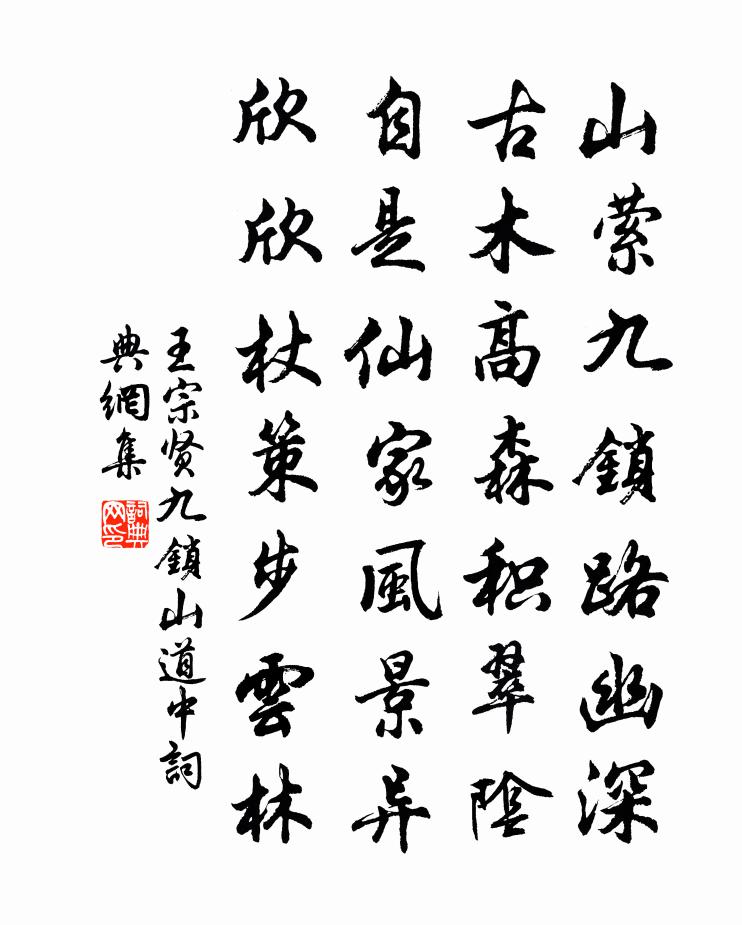 山萦九鎖路幽深
古木高森积翠陰
自是仙家風景异
欣欣杖策步雲林
王宗贤九鎖山道中詞
典網集
詞典网印